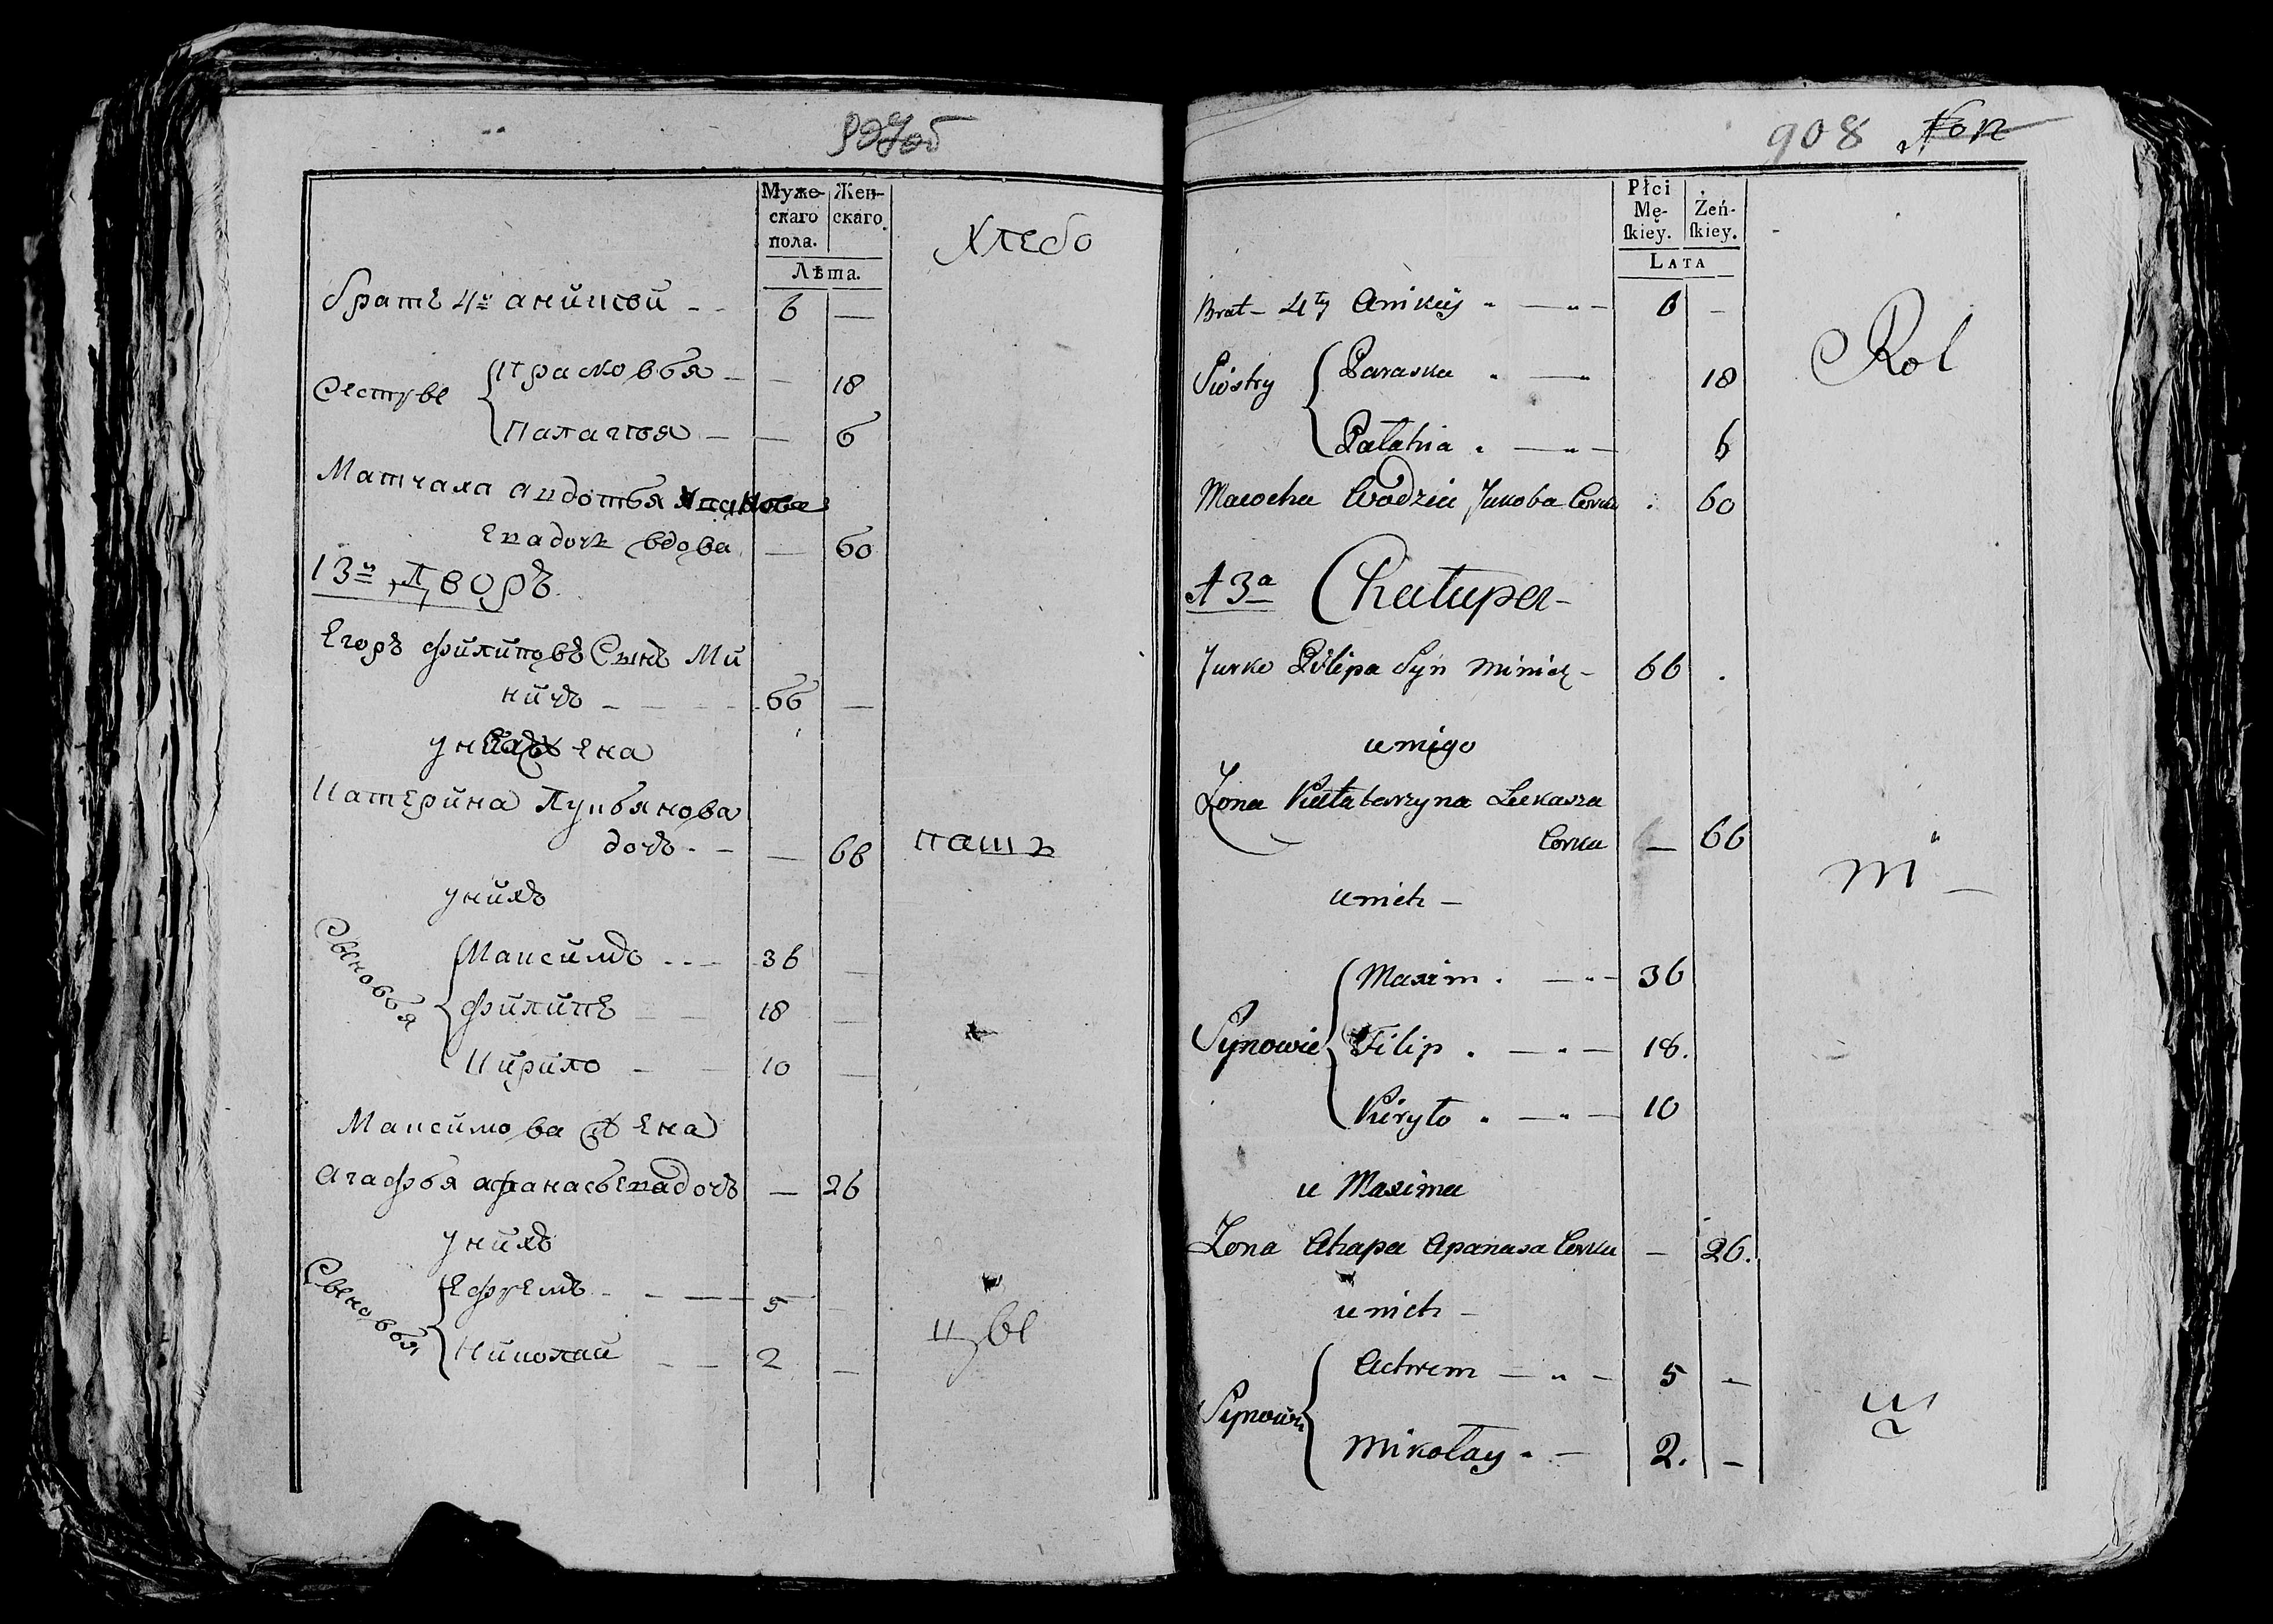 Муже-
скаго
пола.
Жен-
скаго.
Лѣта.
Хлебо
братъ 4й аникей 6
сестры
Прасковья 18
Палагея 6
Матчаха авдотья
ева дочь вдова 60
13й Дворъ
Егоръ филиповъ Сынъ Ми
ничъ 66
у него жена
Катерина Лукьянова
дочь 66
паш
у нихъ
Сыновья
Максимъ 36
филипъ 18
Кирило 10
Максимова жена
агафья афанасьева дочъ 26
у нихъ
Сыновья
Ефремъ 5
Николай 2
цы
908
Płci
Mę-
ſkiey.
Żeń-
ſkiey.
LATA
Rol
Brat 4ty Anikiy 6
Siostry
Paraska 18
Pałahia 6
Macocha Ewodzia Jakoba Corka 60
13a Chałupa
Jurko Pilipa Syn Minicz 66
u niego
Żona Katarzyna Łukasza
Corka 66
ni
u nich
Synowie
Maxim 36
Filip 18.
Kiryło 10
u Maxima
Żona Ahapa Apanasa Corka 26.
u nich
Synowie
Achrem 5
Mikołay 2.
cy